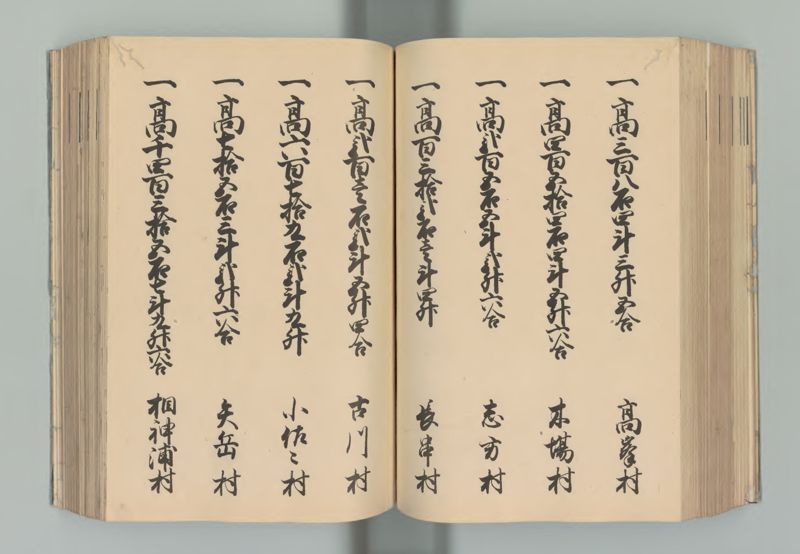 一高三百八石四斗三升五合 高峯村
一高四百五拾四石四斗五升六合 木場村
一高弐百五石五斗弐升六合 志方村
一高百三拾弐石壱斗四升 長串村
一高弐百壱石弐斗五升四合 古川村
一高六百七拾九石弐斗九升 小佐々村
一高七拾五石三斗弐升六合 矢岳村
一高千四百三拾五石七斗九升六合 相神浦村